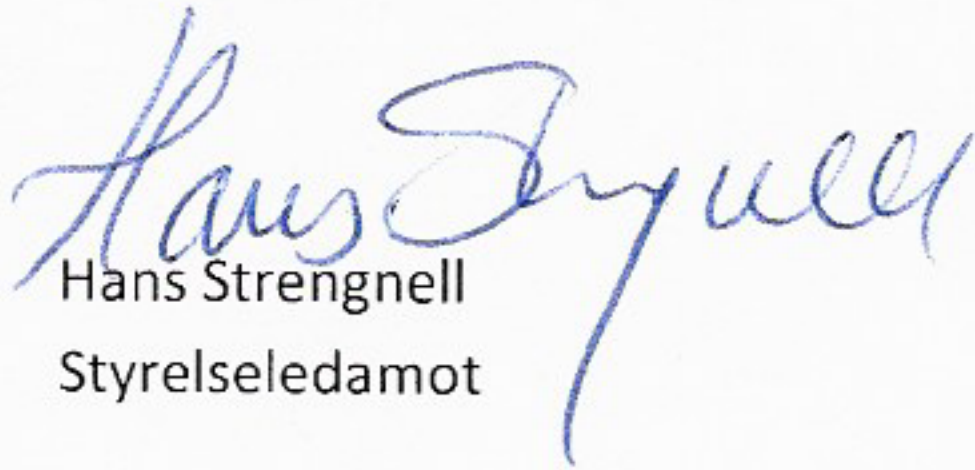 Hans Strengnell
Hans Strengnell
Styrelseledamot